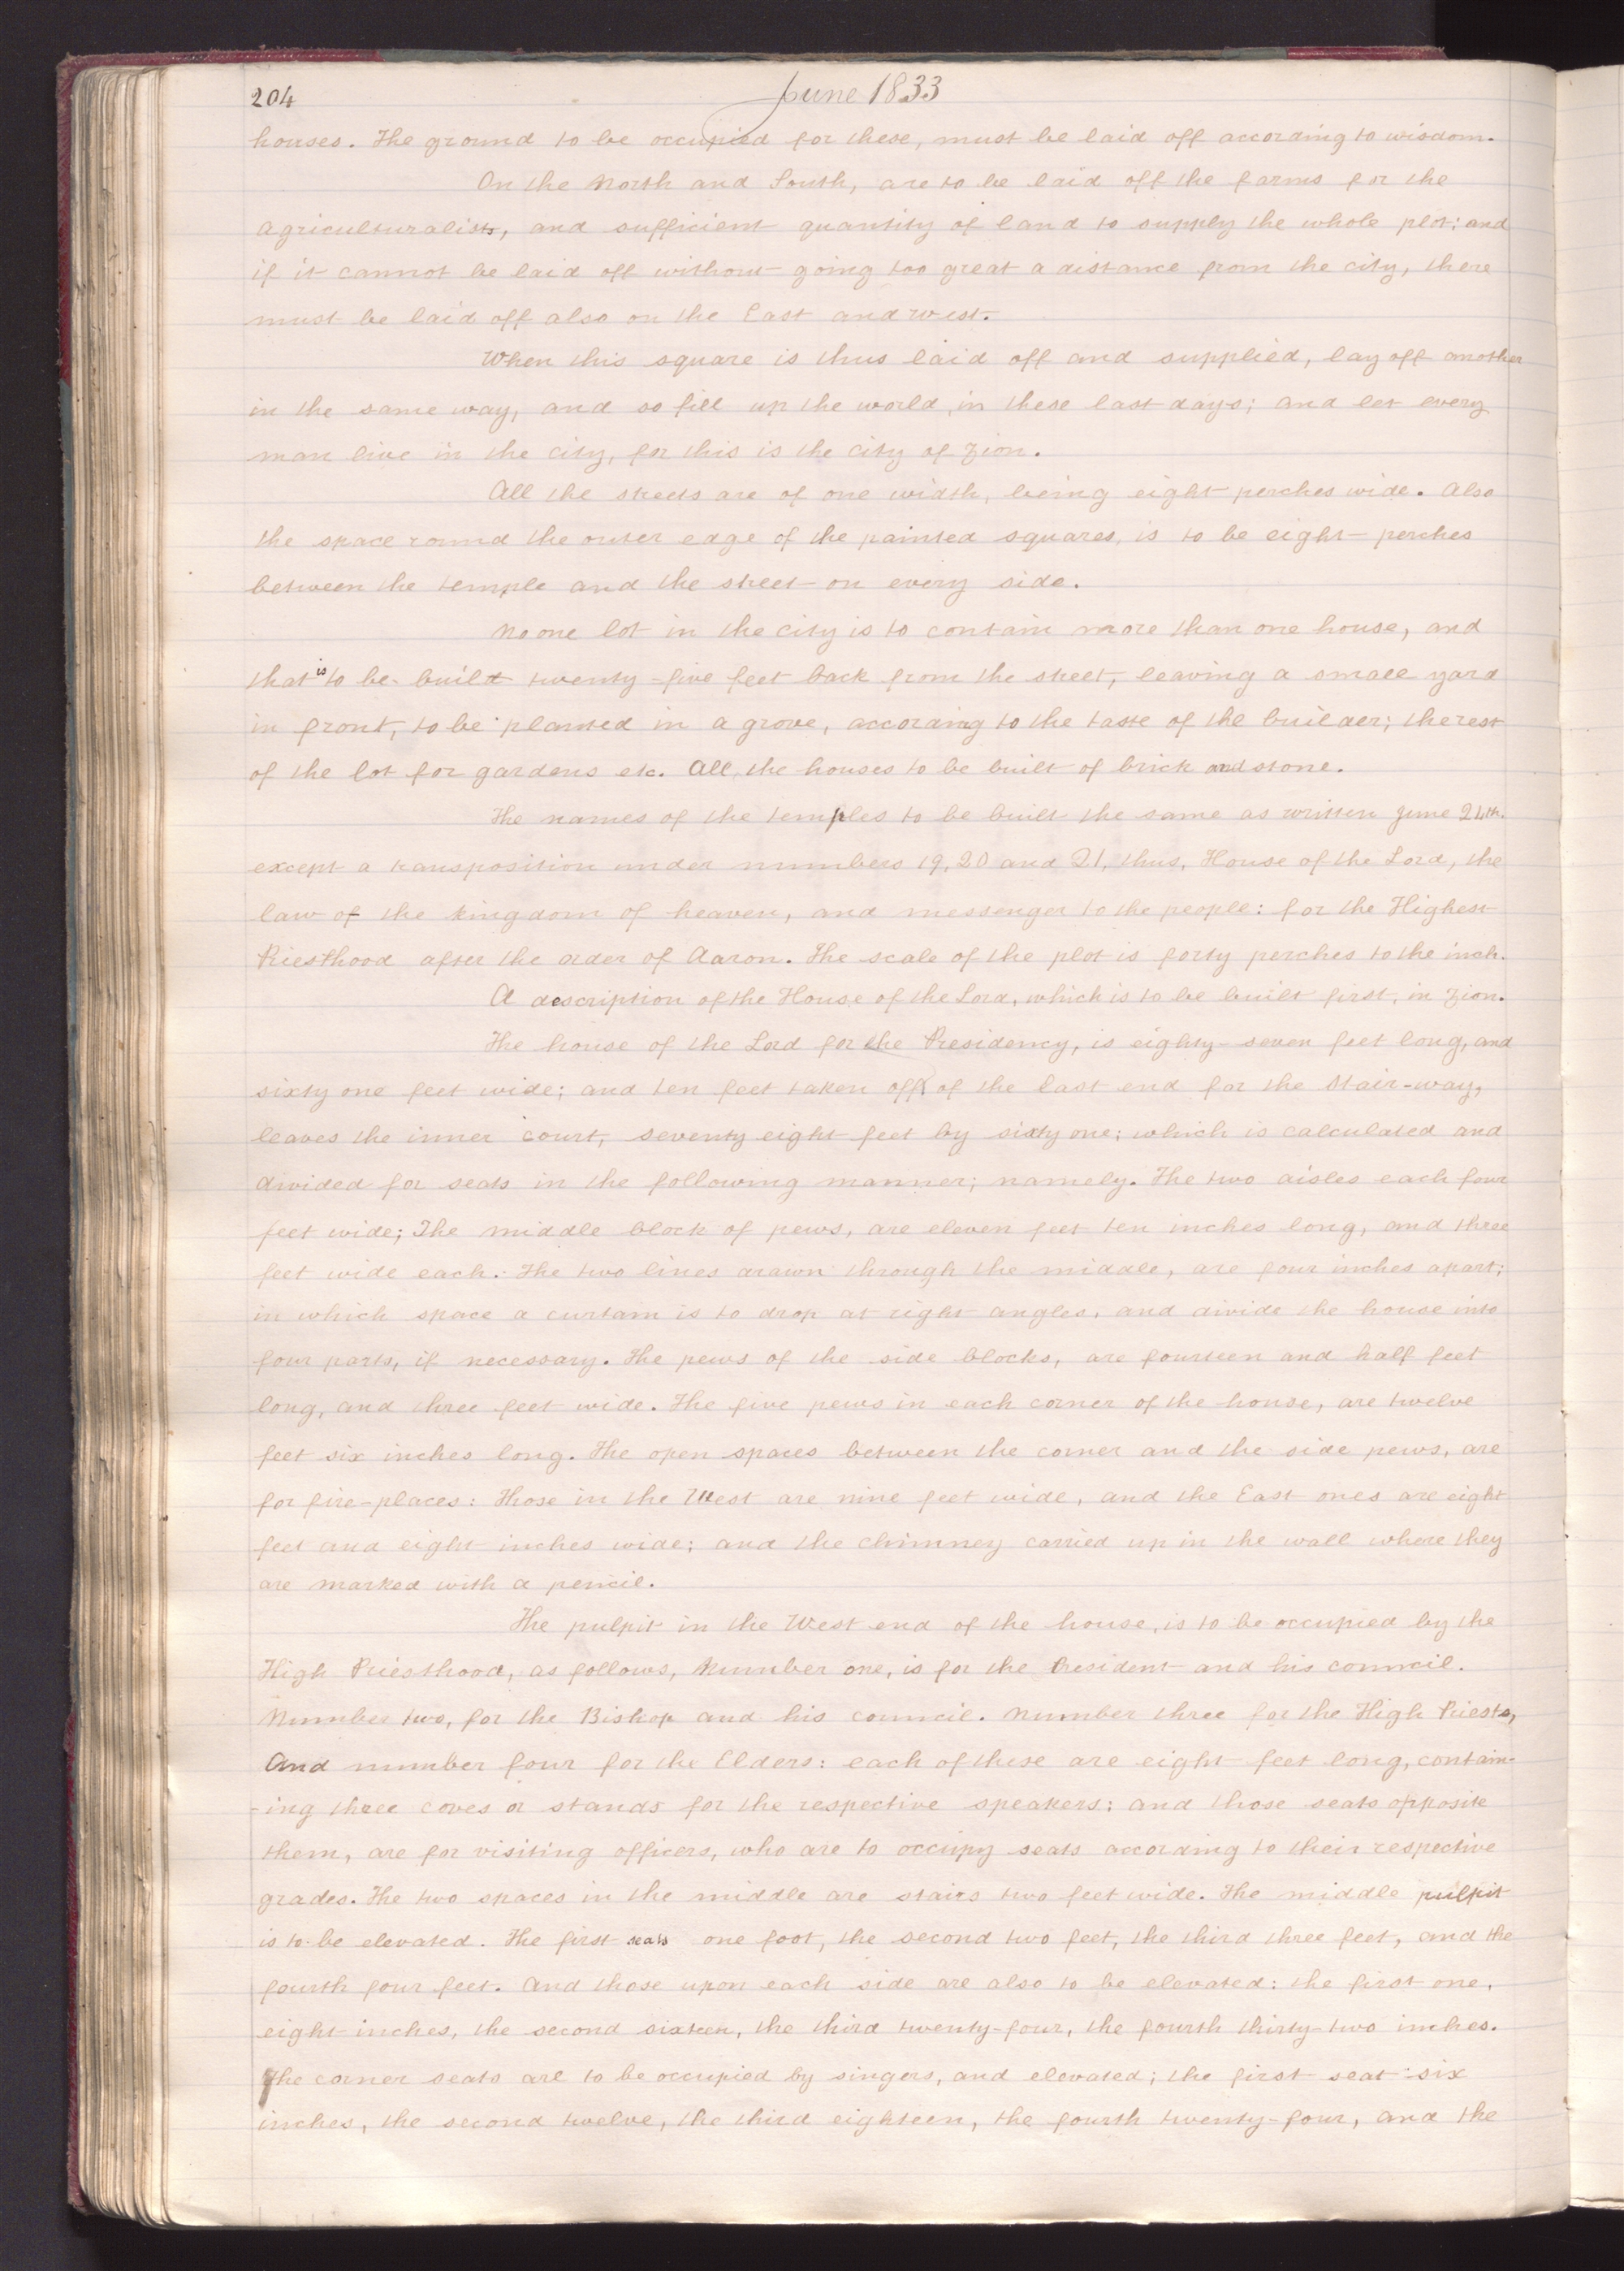 204
June 1833
houses. The ground to be occupied for these, must be laid off according to wisdom.
On the North and South, are to be laid off the farms for the
agriculturalists, and sufficient quantity of land to supply the whole plot; and
if it cannot be laid off without going too great a distance from the city, there
must be laid off also on the East and west.
When this square is thus laid off and supplied, lay off another
in the same way, and so fill up the world, in these last days; and let every
man live in the city, for this is the city of Zion.
All the streets are of one width, being eight perches wide. Also
the space round the outer edge of the painted squares, is to be eight perches
between the temple and the street on every side.
No one lot in the city is to contain more than one house, and
that is to be built twenty-five feet back from the street, leaving a small yard
in front, to be planted in a grove, according to the taste of the builder; the rest
of the lot for gardens etc. All, the houses to be built of brick and stone.
The names of the temples to be built the same as written June 24th.
except a transposition under numbers 19, 20 and 21, thus, House of the Lord, the
law of the kingdom of heaven, and messenger to the people: for the Highest
Priesthood after the order of Aaron. The scale of the plot is forty perches to the inch.
A description of the House of the Lord, which is to be built first, in Zion.
The house of the Lord for the Presidency, is eighty-seven feet long, and
sixty one feet wide; and ten feet taken off of the East end for the Stair-way,
leaves the inner court, seventy eight feet by sixty one; which is calculated and
divided for seats in the following manner; namely. The two aisles each four
feet wide; The middle block of pews, are eleven feet ten inches long, and three
feet wide each. The two lines drawn through the middle, are four inches apart;
in which space a curtain is to drop at right angles, and divide the house into
four parts, if necessary. The pews of the side blocks, are fourteen and half feet
long, and three feet wide. The five pews in each corner of the house, are twelve
feet six inches long. The open spaces between the corner and the side pews, are
for fire-places: Those in the West are nine feet wide, and the East ones are eight
feet and eight inches wide; and the chimney carried up in the wall where they
are marked with a pencil.
The pulpit in the West end of the house, is to be occupied by the
High Priesthood, as follows, Number one, is for the President and his council.
Number two, for the Bishop and his council. Number three for the High Priests,
And number four for the Elders: each of these are eight feet long, contain-
-ing three coves or stands for the respective speakers; and those seats opposite
them, are for visiting officers, who are to occupy seats according to their respective
grades. The two spaces in the middle are stairs two feet wide. The middle pulpit
is to be elevated. The first seats one foot, the second two feet, the third three feet, and the
fourth four feet. And those upon each side are also to be elevated: the first one,
eight inches, the second sixteen, the third twenty-four, the fourth thirty-two inches.
The corner seats are to be occupied by singers, and elevated; the first seat six
inches, the second twelve, the third eighteen, the fourth twenty-four, and the